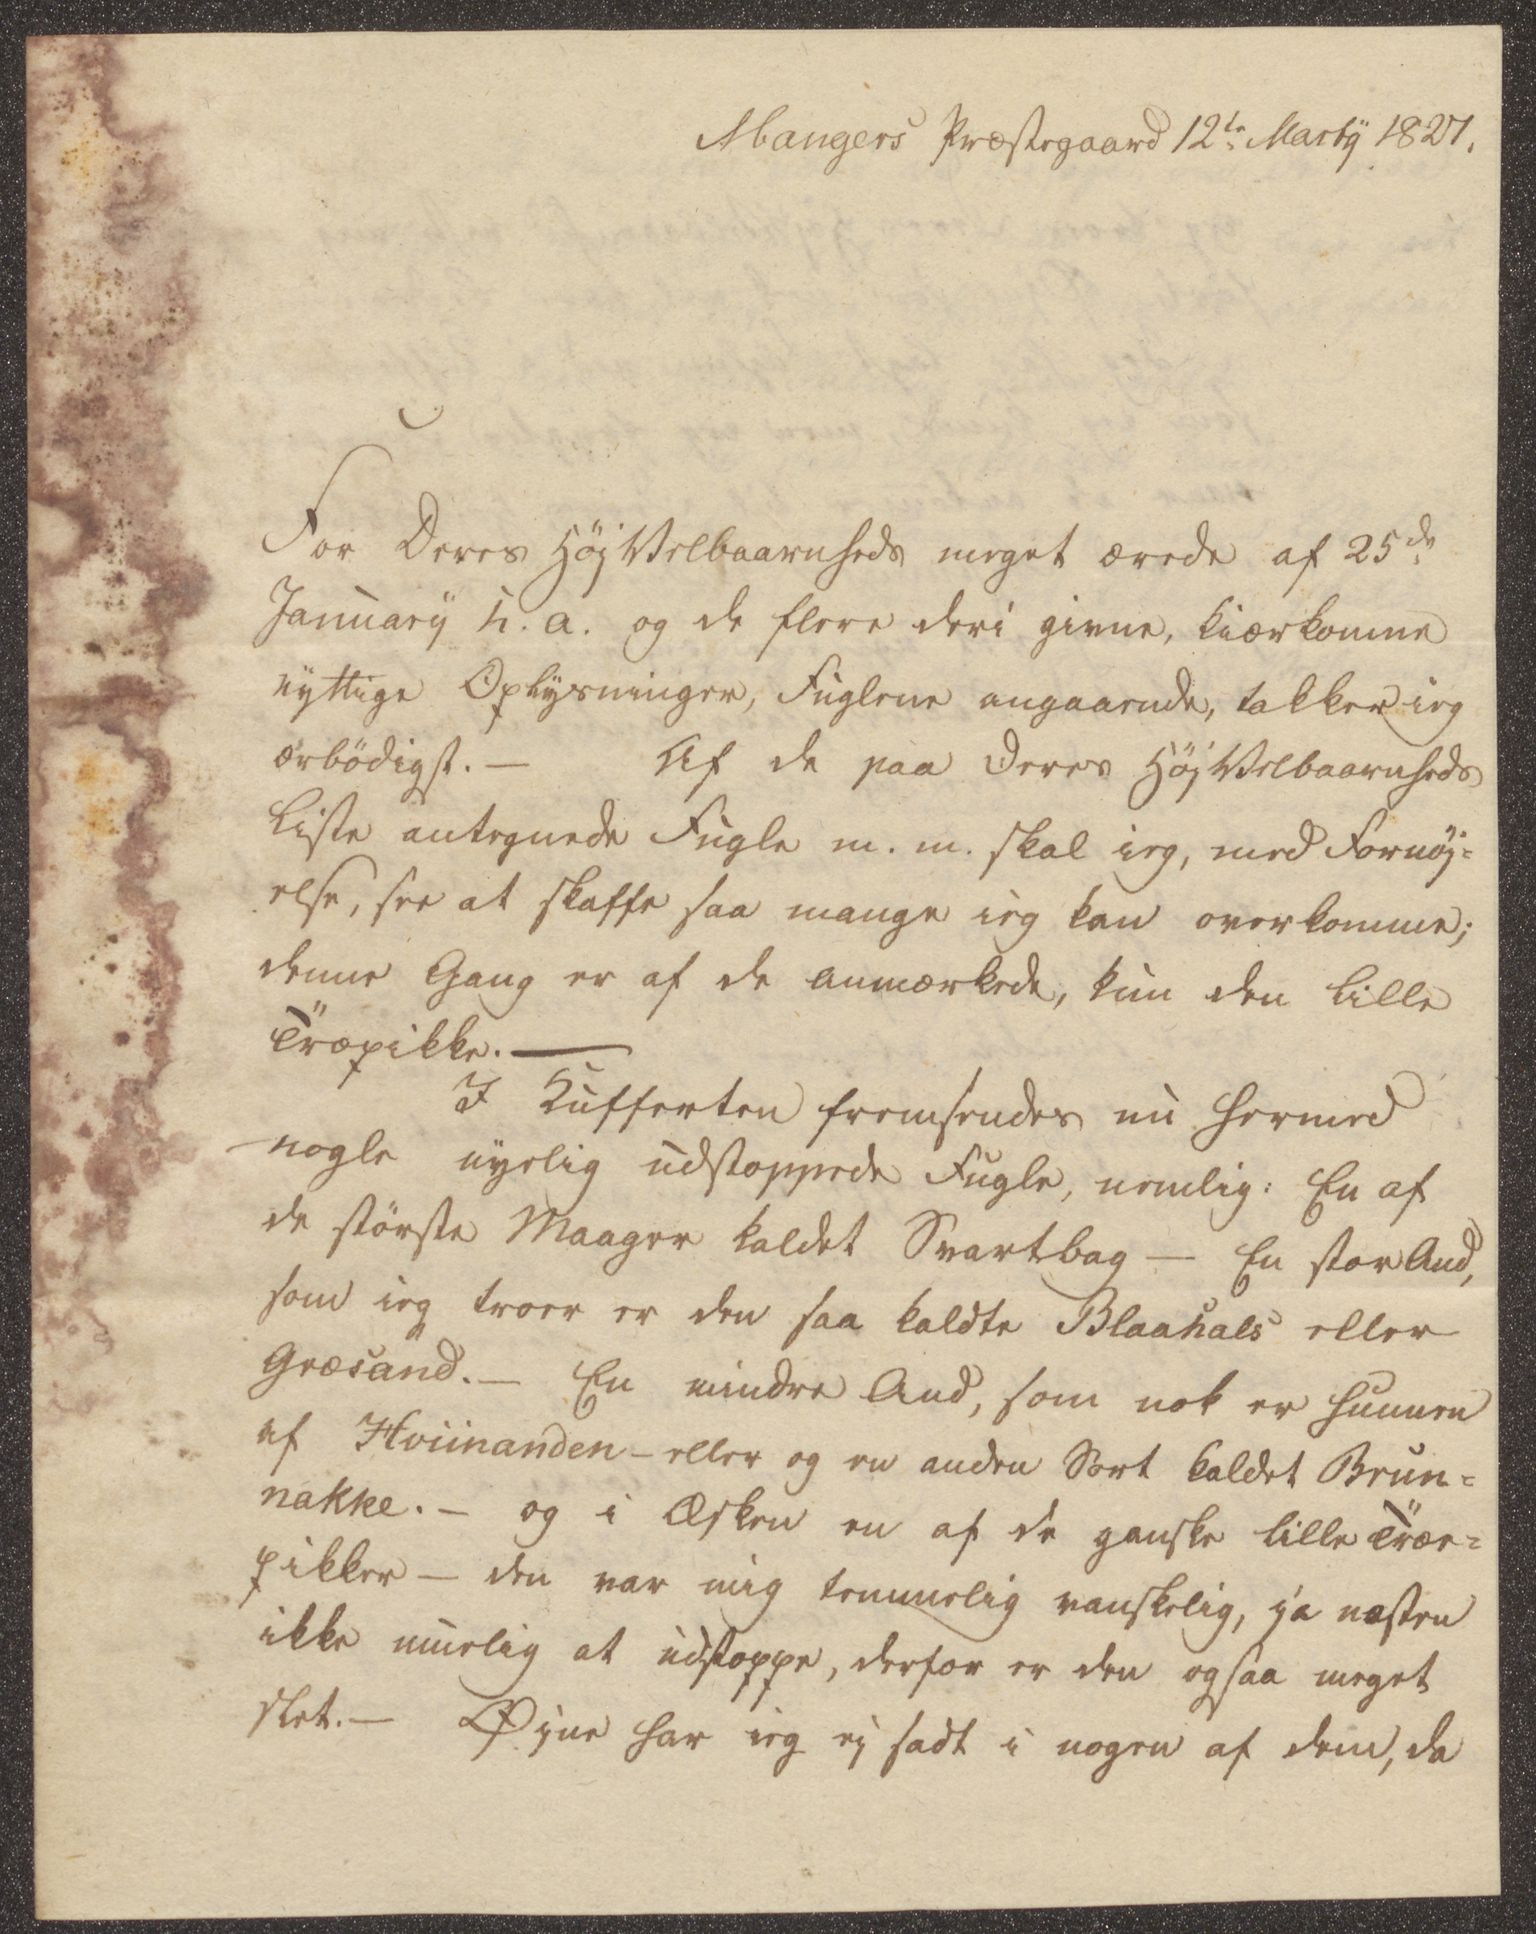 Mangers Præstegaard 12te Martÿ 1827.
For Deres HöjVelbaarnheds meget ærede af 25de
Januarÿ h. a. og de flere deri givne, kiærkomne
nyttige Oplysninger, Fuglene angaaende, takker ieg
ærbödigst. — Af de paa Deres HöjVelbaarnheds
Liste antegnede Fugle m. m. skal ieg, med Fornöj=
else, see at skaffe saa mange ieg kan overkomme;
denne Gang er af de anmærkede, kun den lille
Træpikke. —
I Kufferten fremsendes nu hermed
nogle nyelig udstoppede Fugle, nemlig: En af
de störste Maager kaldet Svartbag — En stor And,
som ieg troer er den saa kaldte Blaahals eller
Græsand. — En mindre And, som nok er Hunnen
af Hviinanden — eller og en anden Sort kaldet Brun=
nakke. — og i Æsken en af de ganske lille Træe=
pikker — den var mig temmelig vanskelig, ja næsten
ikke muelig at udstoppe, derfor er den ogsaa meget
slet. — Øjne har ieg ej sadt i nogen af dem, da